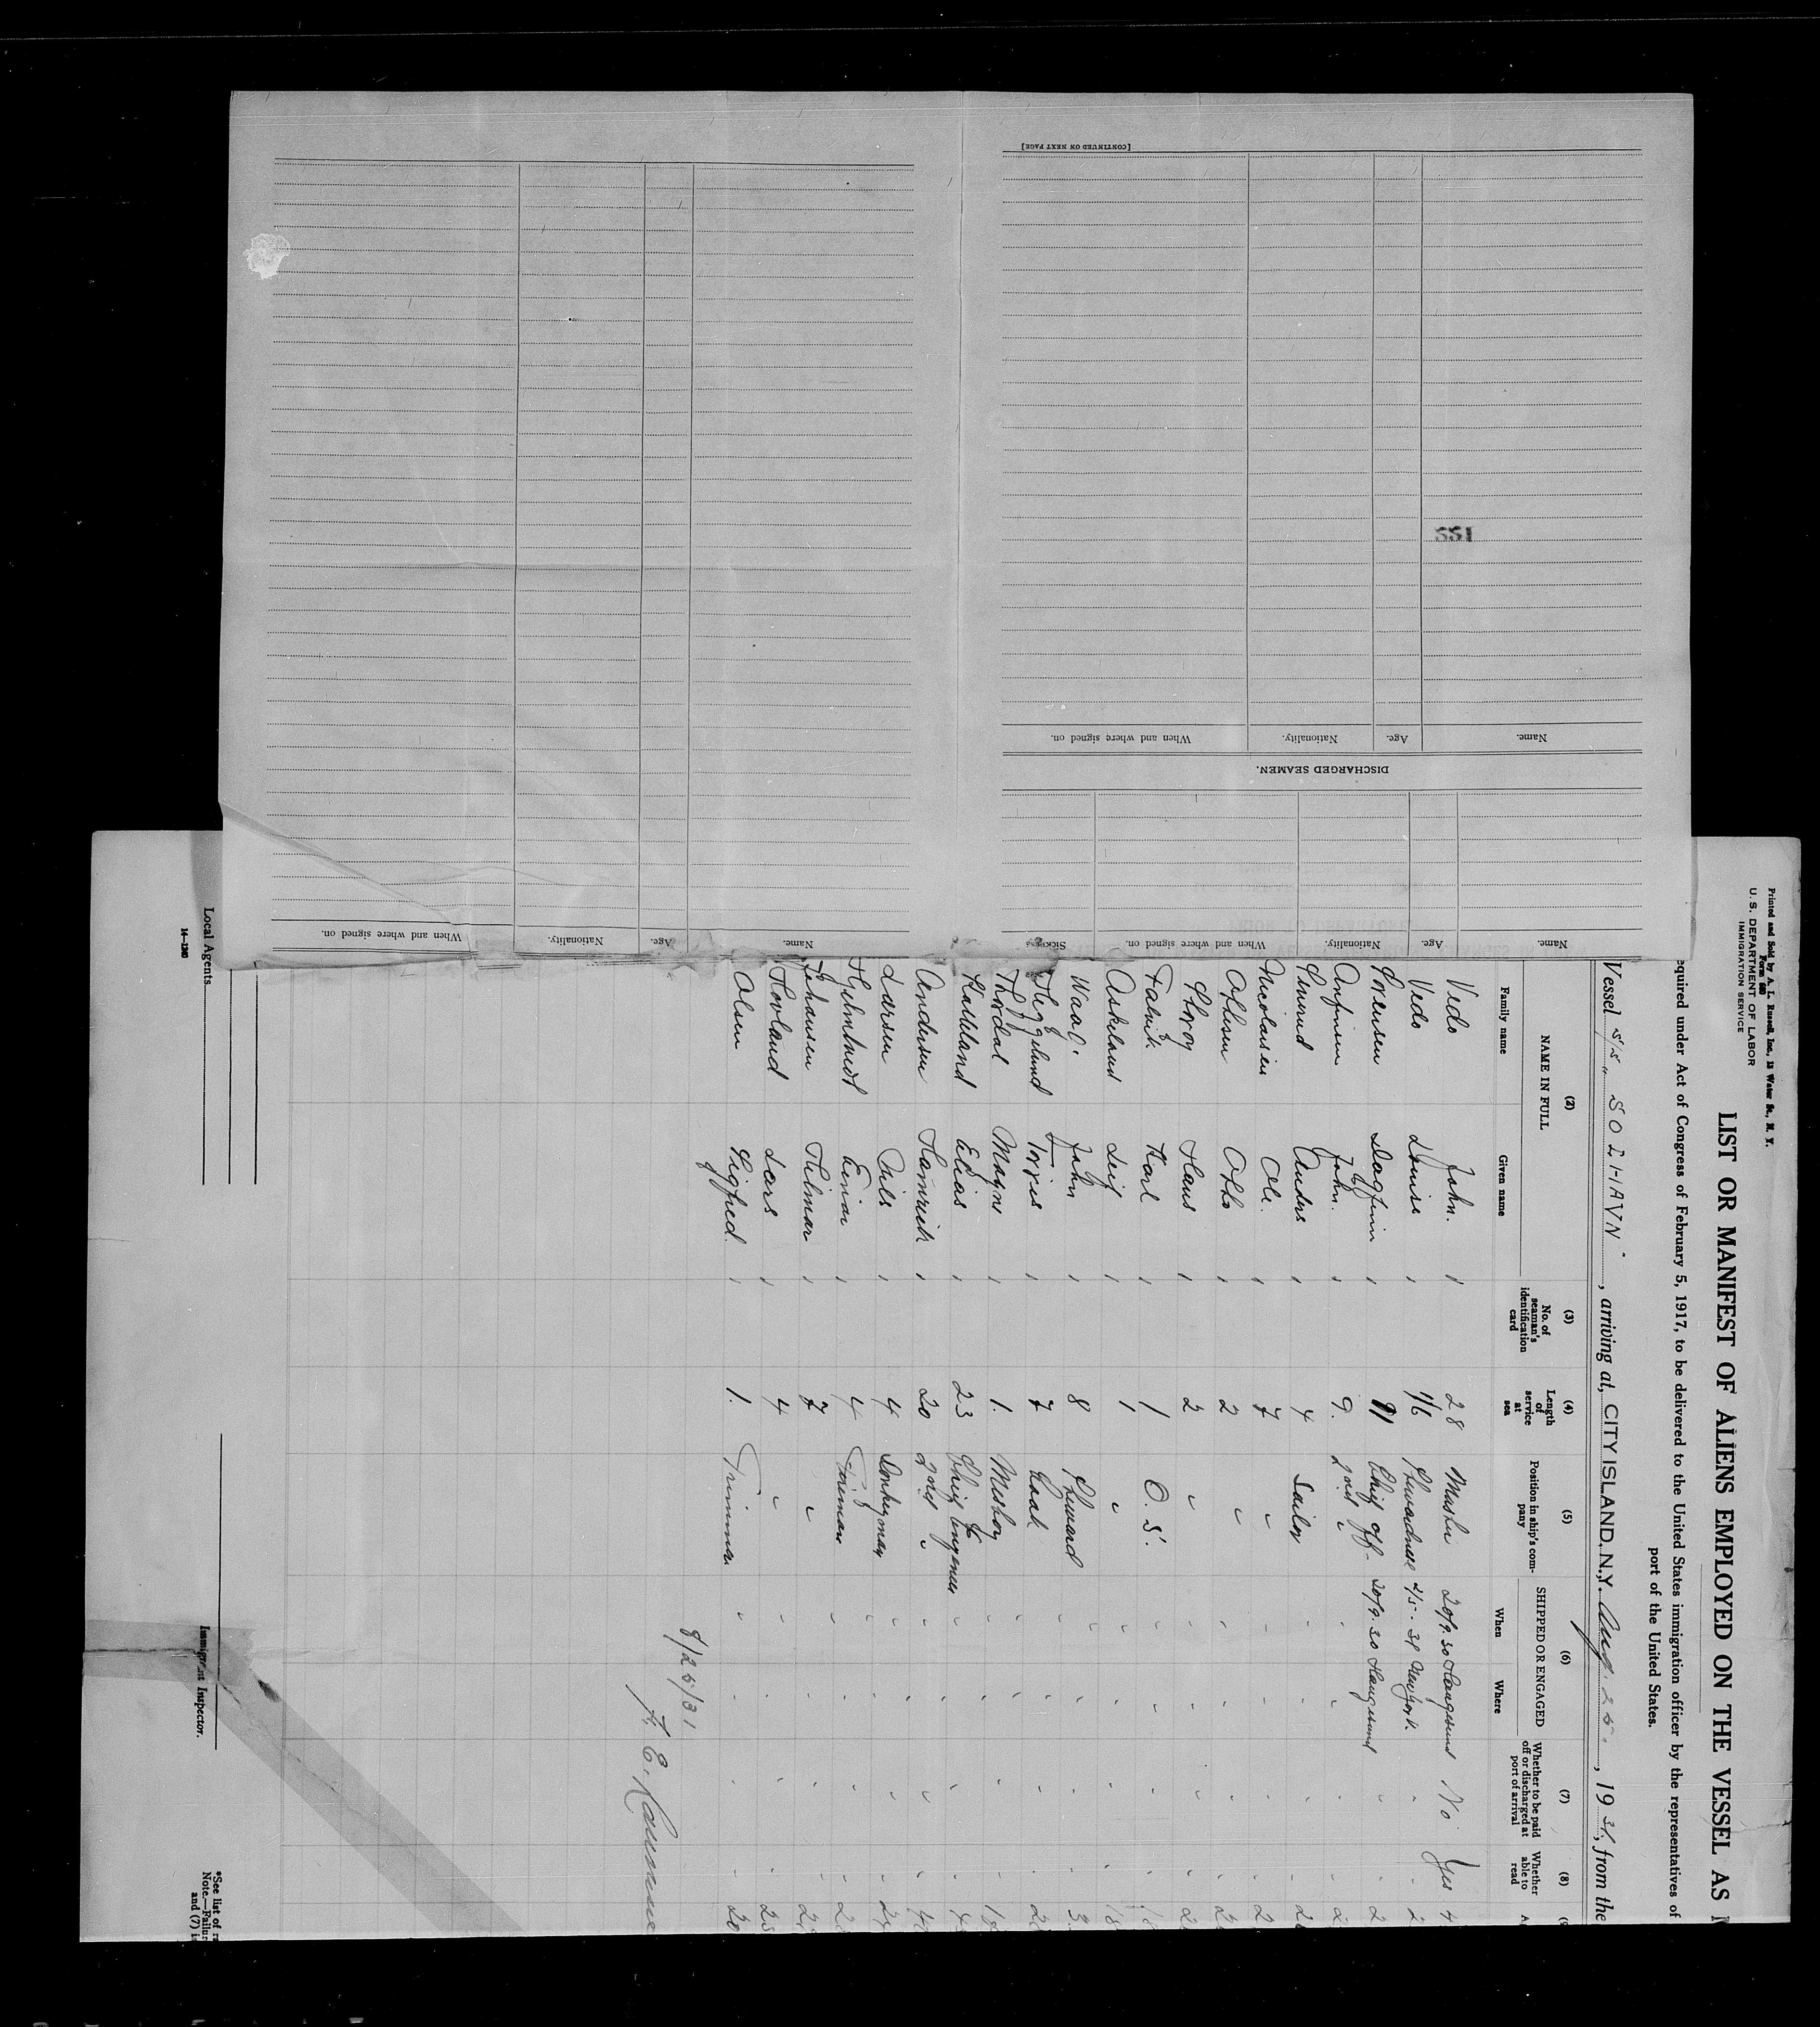 [CONTINUED ON NEXT PAGE]
Name. Age. Nationality. When and where signed on.
DISCHARGED SEAMEN.
Name. Age. Nationality. When and where signed on.
Name. Age. Nationality. When and where signed on.
Printed and Sold by A. L. Russell, Inc., 13 Water St., N. Y.
Form 680
U. S. DEPARTMENT OF LABOR
IMMIGRATION SERVICE
LIST OR MANIFEST OF ALIENS EMPLOYED ON THE VESSEL AS
equired under Act of Congress of February 5, 1917, to be delivered to the United States immigration officer by the representatives of
port of the United States.
Vessel S/S " SOLHAVN ", arriving at, CITY ISLAND, N.Y. Aug 25., 1931, from the
(2) (3) (4) (5) (6) (7) (8)
NAME IN FULL
Family name Given name
No. of seaman's identification card
Length of service at sea
Position in ship's company
SHIPPED OR ENGAGED
When Where
Whether to be paid off or discharged at port of arrival
Whether able to read
Vedo John. 28 Master 20/9.30 Haugesund No Yes 4
Vedo Louise 1/6 Stewardness 2/5-31 New York. " " 2
Sorensen Dagfinn 11 Chief off. 20/9.30 Haugesund " " 2
Anfinsen John. 9. 2nd " " " " " 2
Anders 4 Sailor " " " " 2
Nicolaisen Ole. 7 " " " " " 2
Ottesen Otto 2 " " " " " 2
Storoy Hans 2 " " " " " 2
Falnik Karl 1 O. S. " " " " 1
Askeland Leif 1 " " " " " 18
Waag. John 8 Steward " " " " 3
Heggelund Torris 7 Cook " " " " 2
Thordal Magne 1. Mesboy " " " " 1
Kalleland Elias 23 Chief Engeneer " " " " 4
Andersen Hamrick 20 2nd " " " " " 4
Larsen Nils 4 Donkeyman " " " " 2
Einar 4 Fireman " " " " 2
Johansen Hilmar 7 " " " " " 2
Hovland Lars 4 " " " " " 25
Olsen Sigfred. 1. Trimmer " " " " 20
8/25/31
Local Agents
14—1240
Immigrant Inspector.
*See list of r
Note.—Failur
and (7) is